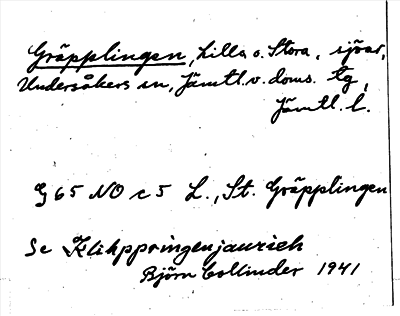 Gräpplingen, Lilla o. Stora, sjöar,
Undersåkers sn, Jämtl. v. doms. tg,
Jämtl. l.
G 65 NO c 5 L., St. Gräpplingen
Se Klihppringenjaurieh
Björn Collinder 1941